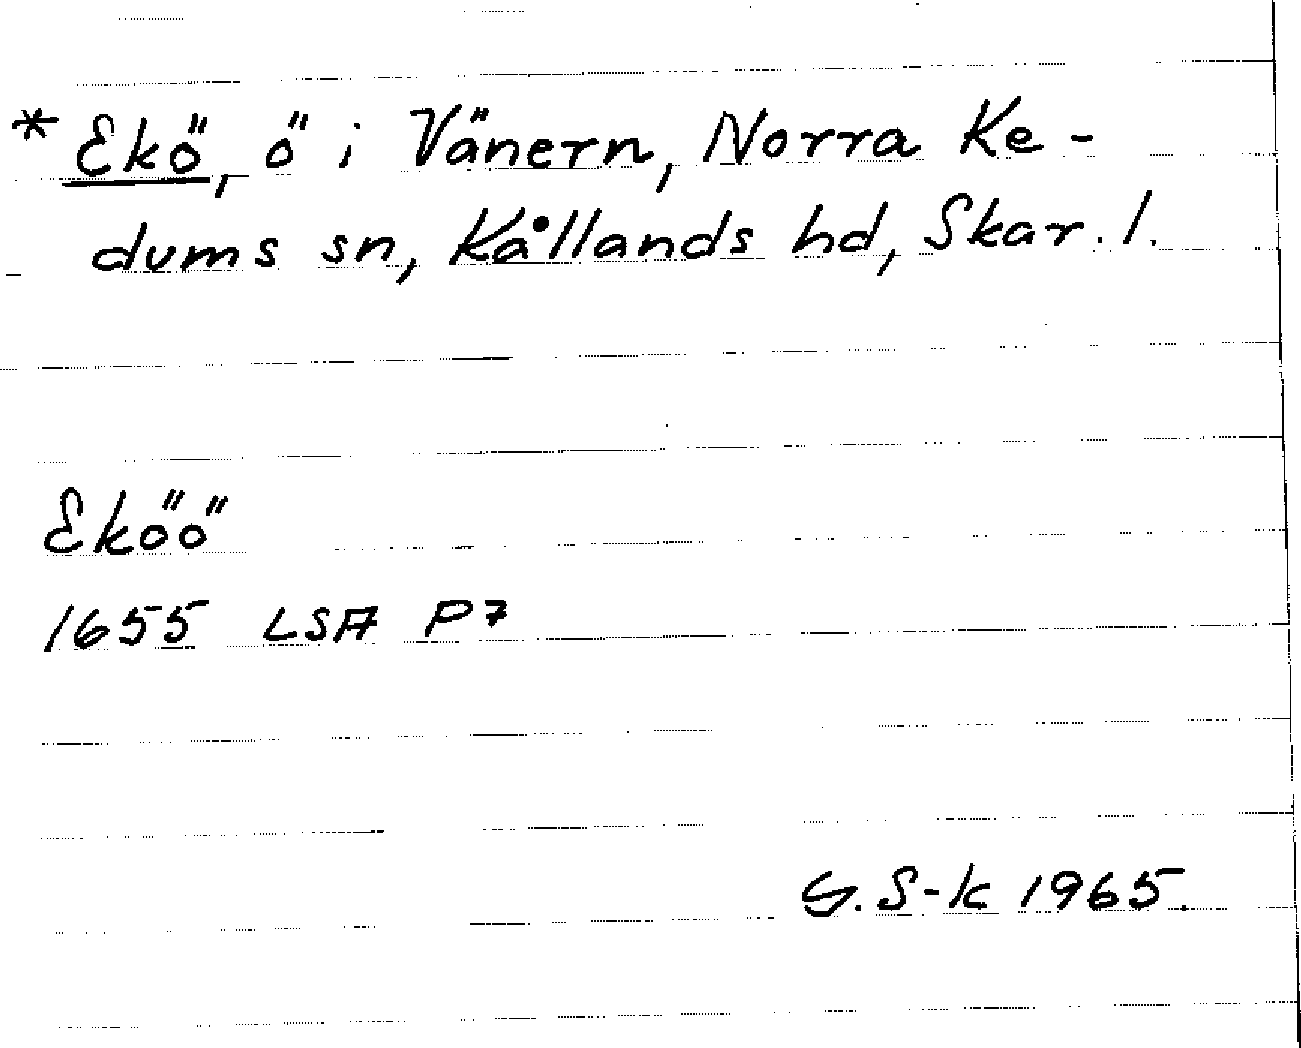 * Ekö, ö i Vänern, Norra Ke-
dums sn, Kållands hd, Skar. l.
Eköö
1655 LSA P7
G. S-k 1965.